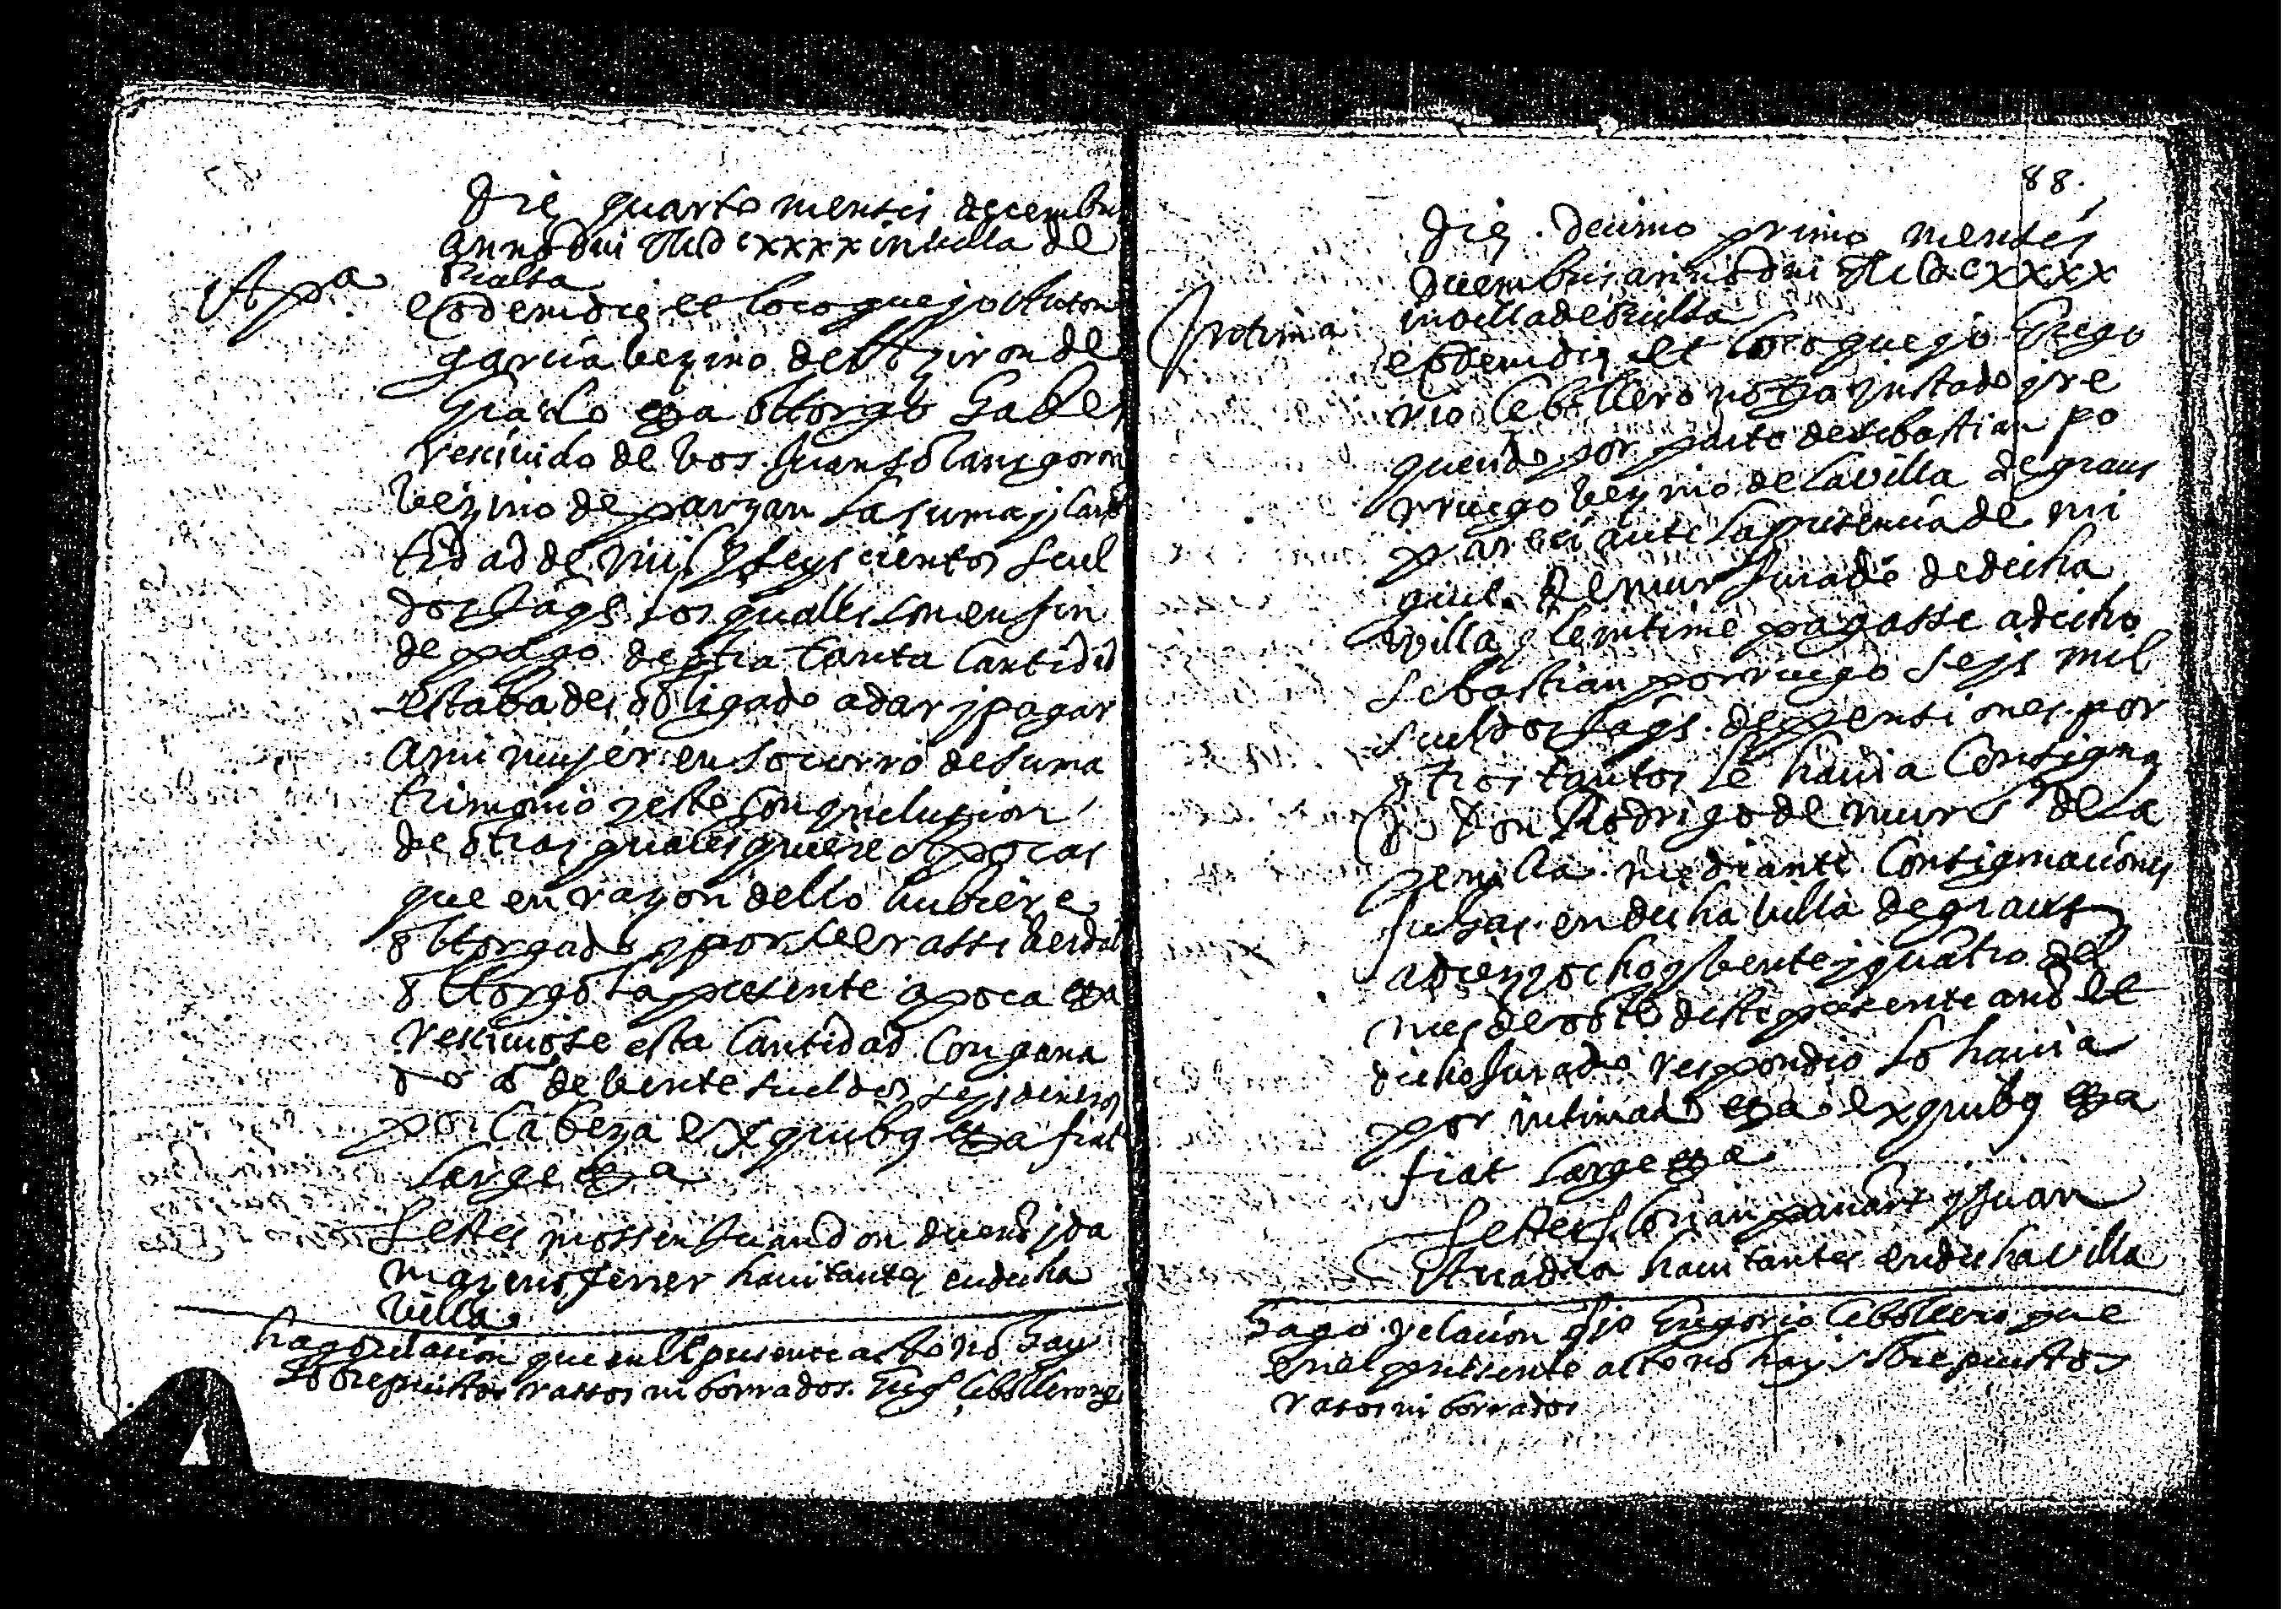 Die quarto mensis decembris
anno dni MDCXXXX in villa de
Apa
Bielsa
Eodem die et loco que jo Anton
garcia bezino del
grado etza ottorgo haber
rescivido de bos Juan solans goron
bezino de parzan la suma y cant
tidad de mil y seyscientos suel
dos jaqs los quales son en fin
de pago de otra tanta cantidad
estabades obligado a dar y pagar
a mi mujer en socorro de su ma
trimonio y esto con inclusion
de otras qualesquiere apocas
que en razon dello hubiere
ottorgado y por seer assi berdad
ottorgo la presente apoca etza
resciviose esta cantidad con gana
do a de bente sueldos seys dineros
por cabeza ex quibus etza fiat
large etza
Testes mossen Juan don y
ferrer havitantes en dicha
villa
hago relacion que en el presente acto no hay
sobrepuestos rassos ni borrados. Greg.º Cebollero
88.
Die decimo primo mensis
decembris anno dni MDCXXXX
in villa de Bielsa
Intima
eodem die et loco que jo Grego
rio Cebollero notº instado y re
querido por parte de sebastian po
rruego bezino de la villa de graus
pareci ante la presencia de mi
guel de mur Jurado de dicha
villa y le intime pagasse a dicho
sebastian porruego seys mil
sueldos jaqs. de pensiones por
otros tantos le havia consigna
do Don Rodrigo de mur de la
penilla mediante consignaciones
fechas en dicha villa de graus
a diezyocho y bente y quatro del
mes de deste presente año et
dicho Jurado respondio lo havia
por intimado etza ex quibus etza
fiat large etza
Testes y Juan
havitantes en dicha villa
hago relacion yo Gregorio Cebollero que
en el presente acto no hay sobrepuestos
rasos ni borrados